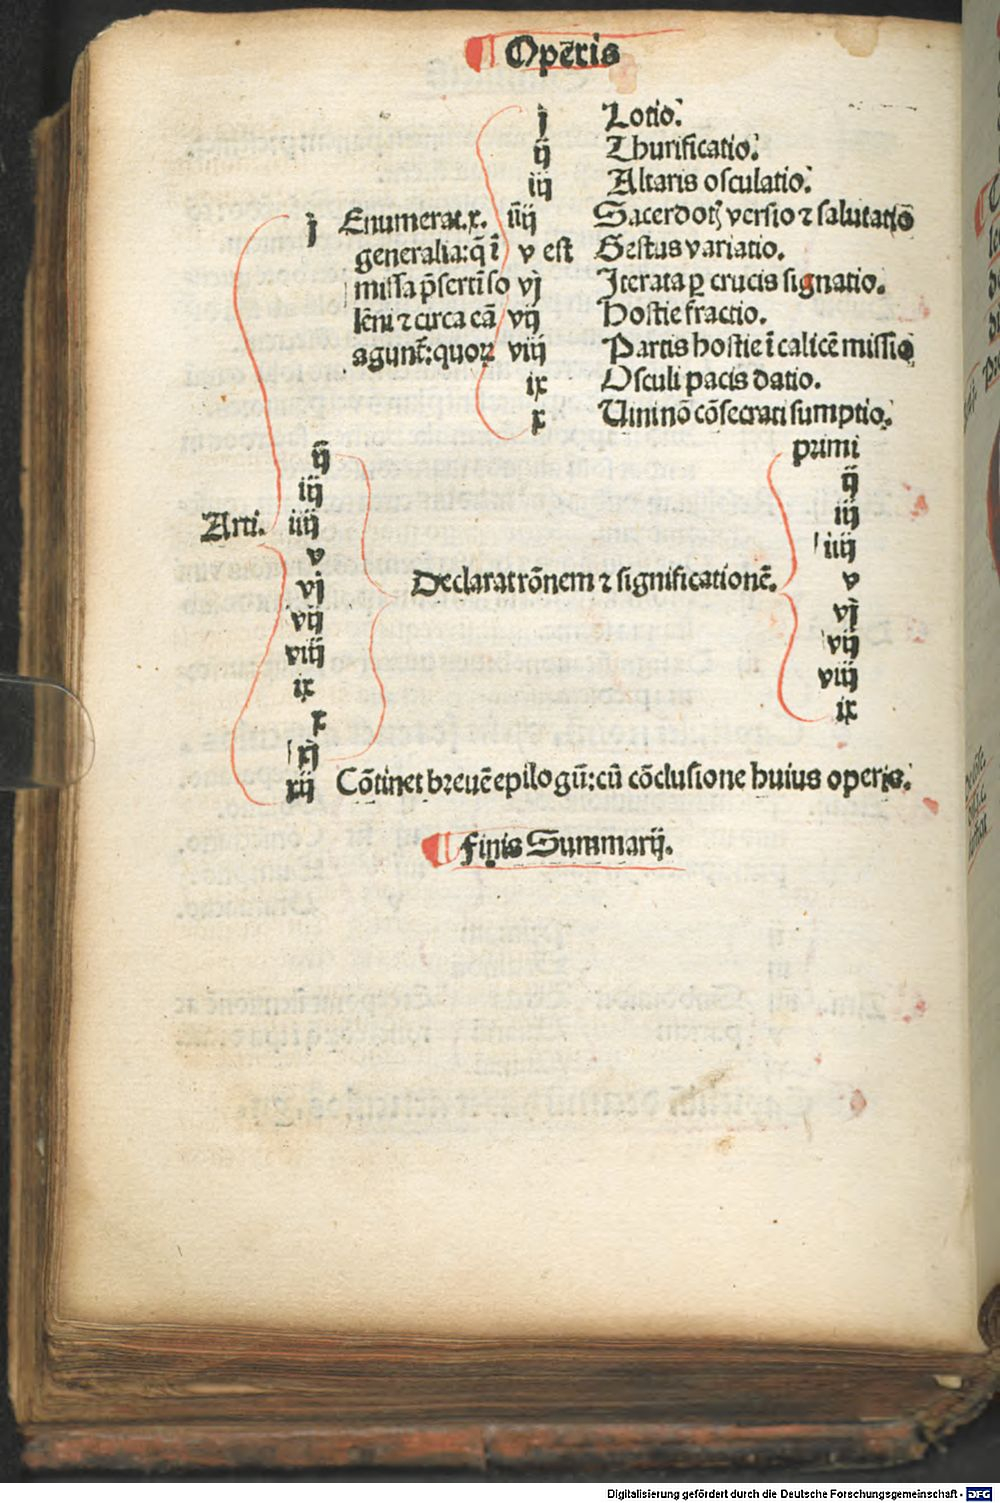 ¶ Opēris
j Lotio.
ij Thurificatio.
iij Altaris osculatio.
j Enumerat.x. iiij Sacerdotꝭ versio ⁊ salutatiō
generalia:q̄ ī v est Gestus variatio.
missa p̄sertī so vj Iterata ꝑ crucis signatio.
lēni ⁊ circa eā vij Hostie fractio.
agunt̄:quoꝝ viij Partis hostie ī calicē missio
ix Osculi pacis datio.
x Vini nō cōsecrati sumptio.
ij primi
iij ij
Arti. iiij iij
v iiij
vj Declarat rōnem ⁊ significationē. v
vij vj
viij vij
ix viij
x ix
xj
xij Cōtinet breuē epilogū:cū cōclusione huius operis.
¶ Finis Summarij.
Digitalisierung gefördert durch die Deutsche Forschungsgemeinschaft - DFG